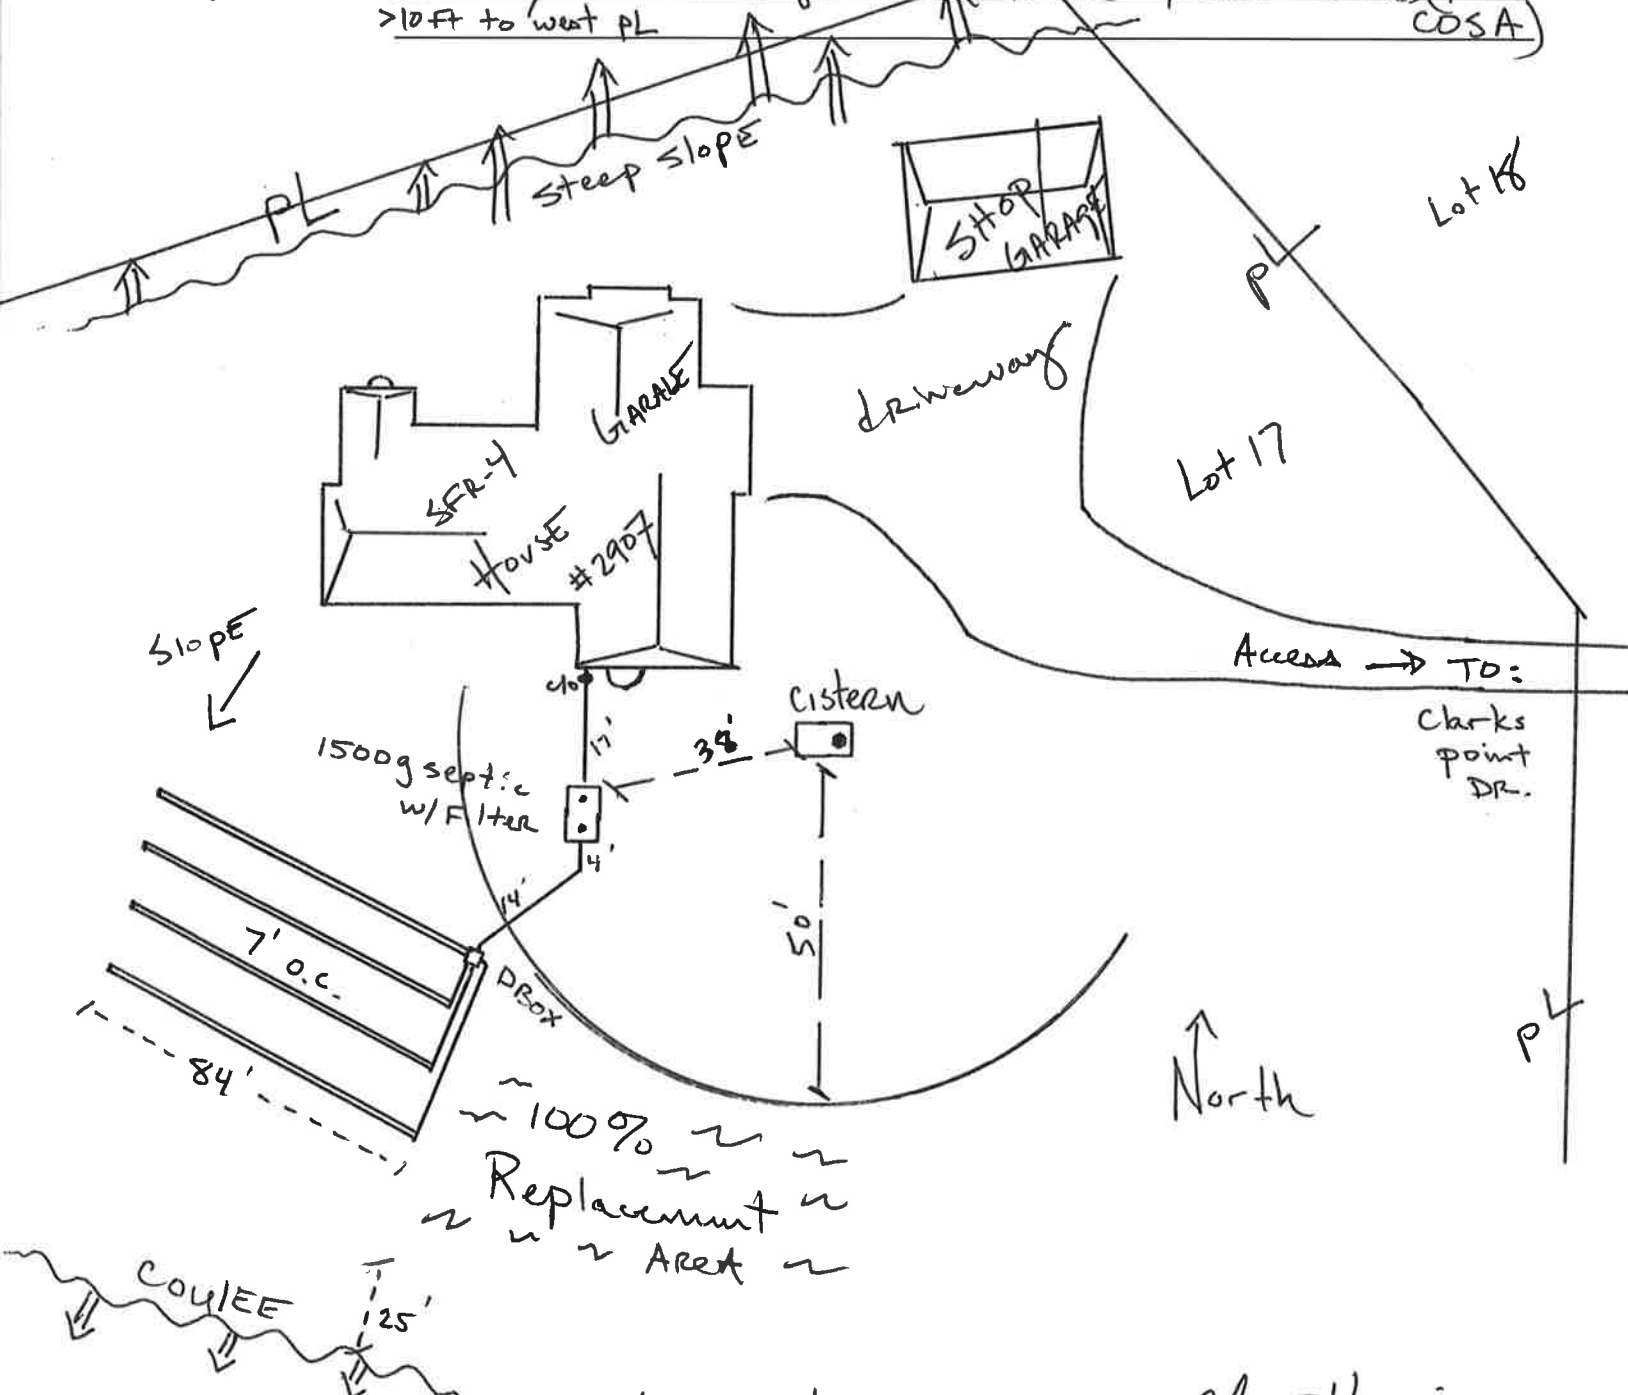 >10ft to west pL
COSA)
PL
Steep Slope
SHOP
GARAGE
Lot 18
PL
driveway
GARAGE
SFR-4
HOUSE
#2907
Lot 17
Slope
Access → TO:
Clarks
point
DR.
c/o
Cistern
17'
38'
1500g septic
w/Filter
4'
14'
50'
7' o.c.
DBox
84'
PL
North
100%
Replacement
Area
COULEE
25'